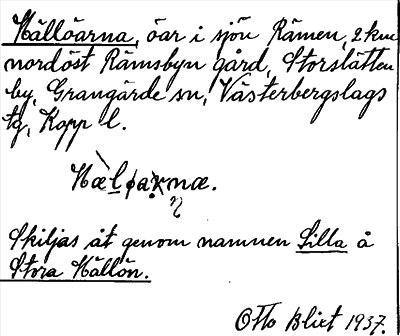 Hällöarna, öar i sjön Rämen, 2 km
nordöst Rämsbyn gård, Storslätten
by, Grangärde sn, Västerbergslags
tg, Kopp l.
Skiljas åt genom namnen Lilla å
Stora Hällön.
Otto Blixt 1937.